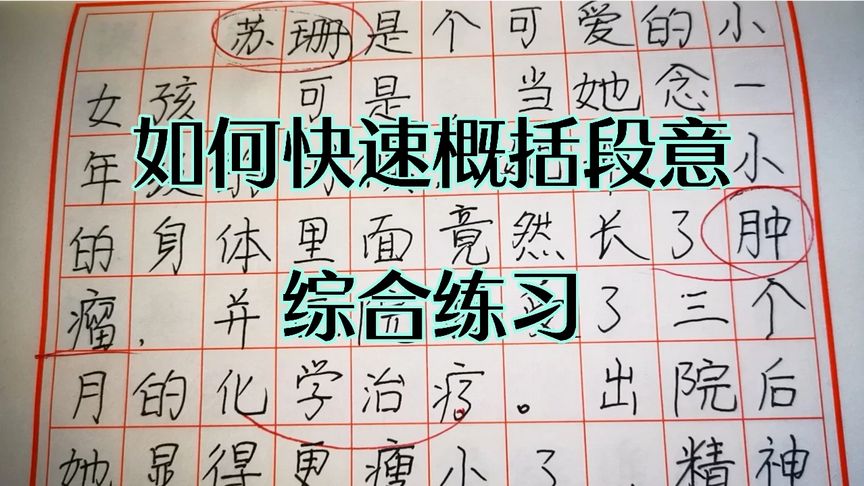 苏珊是个可爱的小
女孩 可是，当她念一
如何快速概括段意
年 小
的身体里面竟然长了肿
综合练习
瘤，并 了三个
月的化学治疗。出院后
她显得更瘦小了，精神